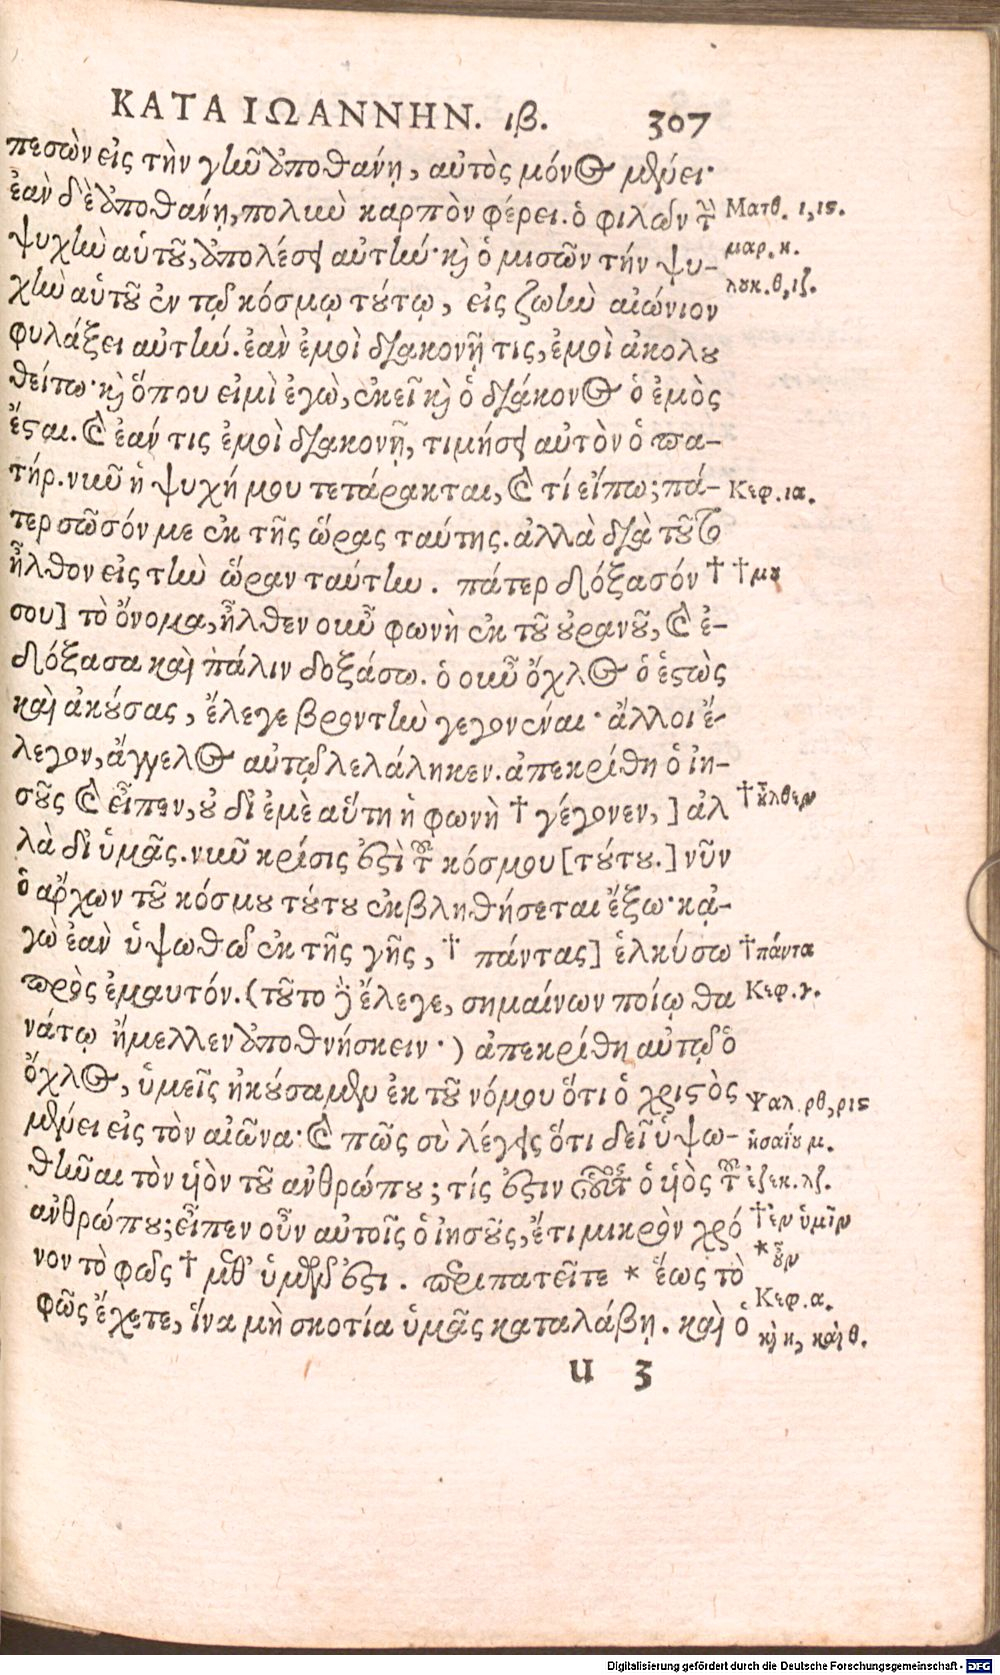 ΚΑΤΑ ΙΩΑΝΝΗΝ. ιβ. 307
πεσὼν εἰς τὴν γῆν ἀποθάνῃ, αὐτὸς μόνος μένει·
ἐὰν δὲ ἀποθάνῃ, πολὺν καρπὸν φέρει. ὁ φιλῶν τὴν
Ματθ. ι, ις.
ψυχὴν αὑτοῦ, ἀπολέσει αὐτήν· καὶ ὁ μισῶν τήν ψυ-
μαρ. κ.
χὴν αὑτοῦ ἐν τῳ κόσμῳ τούτῳ, εἰς ζωὴν αἰώνιον
λουκ. θ, ιζ.
φυλάξει αὐτήν. ἐὰν ἐμοὶ διακονῇ τις, ἐμοὶ ἀκολου
θείτω· καὶ ὅπου εἰμὶ ἐγὼ, ἐκεῖ καὶ ὁ διάκονος ὁ ἐμὸς
ἔσται. καὶ ἐάν τις ἐμοὶ διακονῇ, τιμήσει αὐτὸν ὁ πα-
τήρ. νῦν ἡ ψυχή μου τετάρακται, καὶ τί εἴπω; πά-
Κεφ. ια.
τερ σῶσόν με ἐκ τῆς ὥρας ταύτης. ἀλλὰ διὰ τοῦτο
ἦλθον εἰς τὴν ὥραν ταύτην. πάτερ δόξασόν †
† μου
σου] τὸ ὄνομα, ἦλθεν οὖν φωνὴ ἐκ τοῦ οὐρανοῦ, καὶ ἐ-
δόξασα καὶ πάλιν δοξάσω. ὁ οὖν ὄχλος ὁ ἑστὼς
καὶ ἀκούσας, ἔλεγε βροντὴν γεγονέναι· ἄλλοι ἔ-
λεγον, ἄγγελος αὐτῳ λελάληκεν. ἀπεκρίθη ὁ ἰη-
σοῦς καὶ εἶπεν, οὐ δι' ἐμὲ αὕτη ἡ φωνὴ † γέγονεν, ] ἀλ
† ἦλθεν
λὰ δι' ὑμᾶς. νῦν κρίσις ἐστὶ τοῦ κόσμου [τούτου.] νῦν
ὁ ἄρχων τοῦ κόσμου τούτου ἐκβληθήσεται ἔξω· κᾀ-
γὼ ἐὰν ὑψωθῶ ἐκ τῆς γῆς, † πάντας] ἑλκύσω
† πάντα
πρὸς ἐμαυτόν. (τοῦτο δὲ ἔλεγε, σημαίνων ποίῳ θα
Κεφ. γ.
νάτῳ ἤμελλεν ἀποθνήσκειν· ) ἀπεκρίθη αὐτῳ ὁ
ὄχλος, ὑμεῖς ἠκούσαμεν ἐκ τοῦ νόμου ὅτι ὁ χριστὸς
Ψαλ. ρθ, ρις
μένει εἰς τὸν αἰῶνα· καὶ πῶς σὺ λέγεις ὅτι δεῖ ὑψω-
ἠσαΐου μ.
θῆναι τὸν υἱὸν τοῦ ἀνθρώπου; τίς ἐστιν οὗτος ὁ υἱὸς τοῦ
ἐζεκ. λζ.
ἀνθρώπου; εἶπεν οὖν αὐτοῖς ὁ ἰησοῦς, ἔτι μικρὸν χρό
† ἐν ὑμῖν
νον τὸ φῶς † μεθ' ὑμῶν ἐστι. περιπατεῖτε * ἕως τὸ
* οὖν
φῶς ἔχετε, ἵνα μὴ σκοτία ὑμᾶς καταλάβῃ. καὶ ὁ
Κεφ. α.
καὶ κ, καὶ θ.
u 3
Digitalisierung gefördert durch die Deutsche Forschungsgemeinschaft - DFG